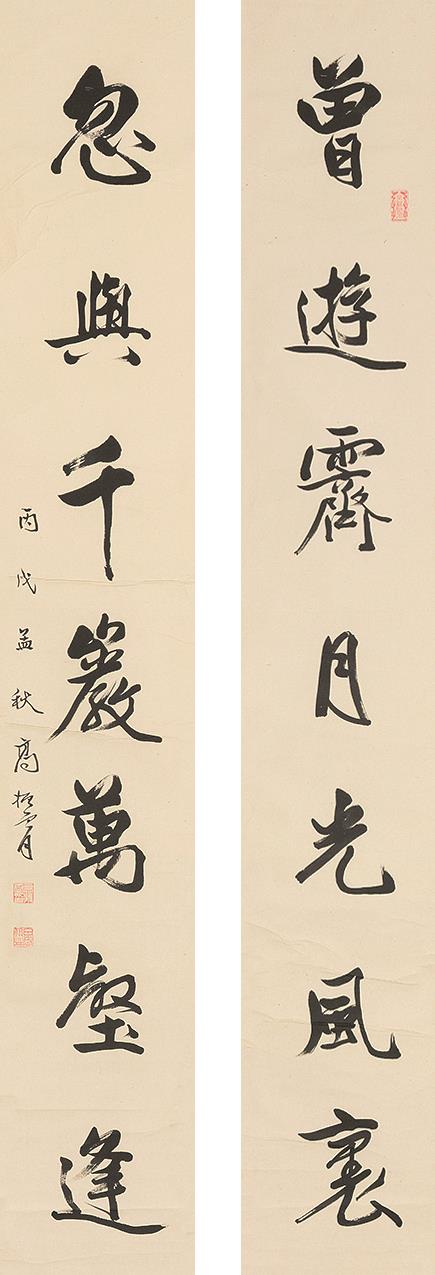 曾遊霽月光風裏
忽與千巖萬壑逢
丙戌孟秋高振霄